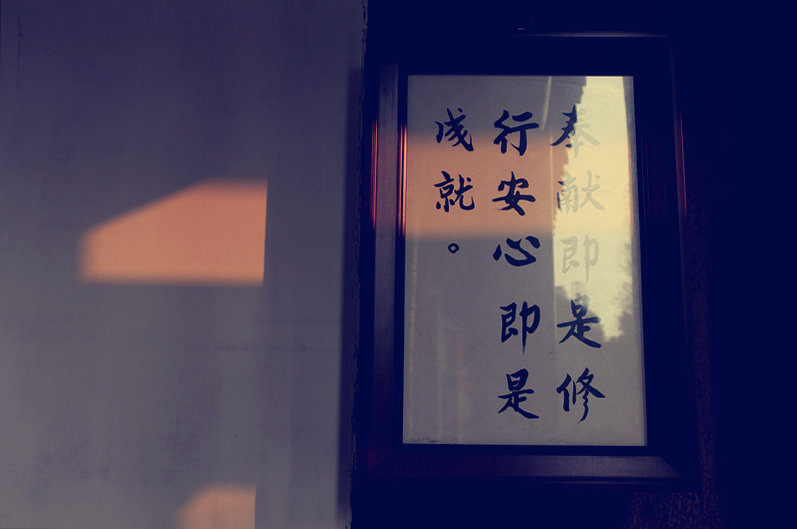 奉献即是修
行安心即是
成就。